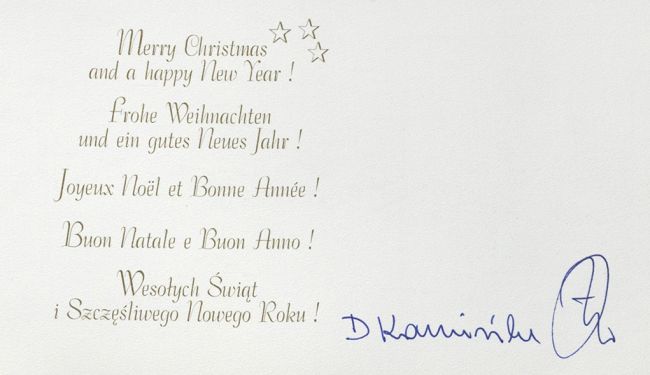 Merry Christmas
and a happy New Year !
Frohe Weihnachten
und ein gutes Neues Jahr !
Joyeux Noël et Bonne Année !
Buon Natale e Buon Anno !
Wesołych Świąt
i Szczęśliwego Nowego Roku !
D Kamiński